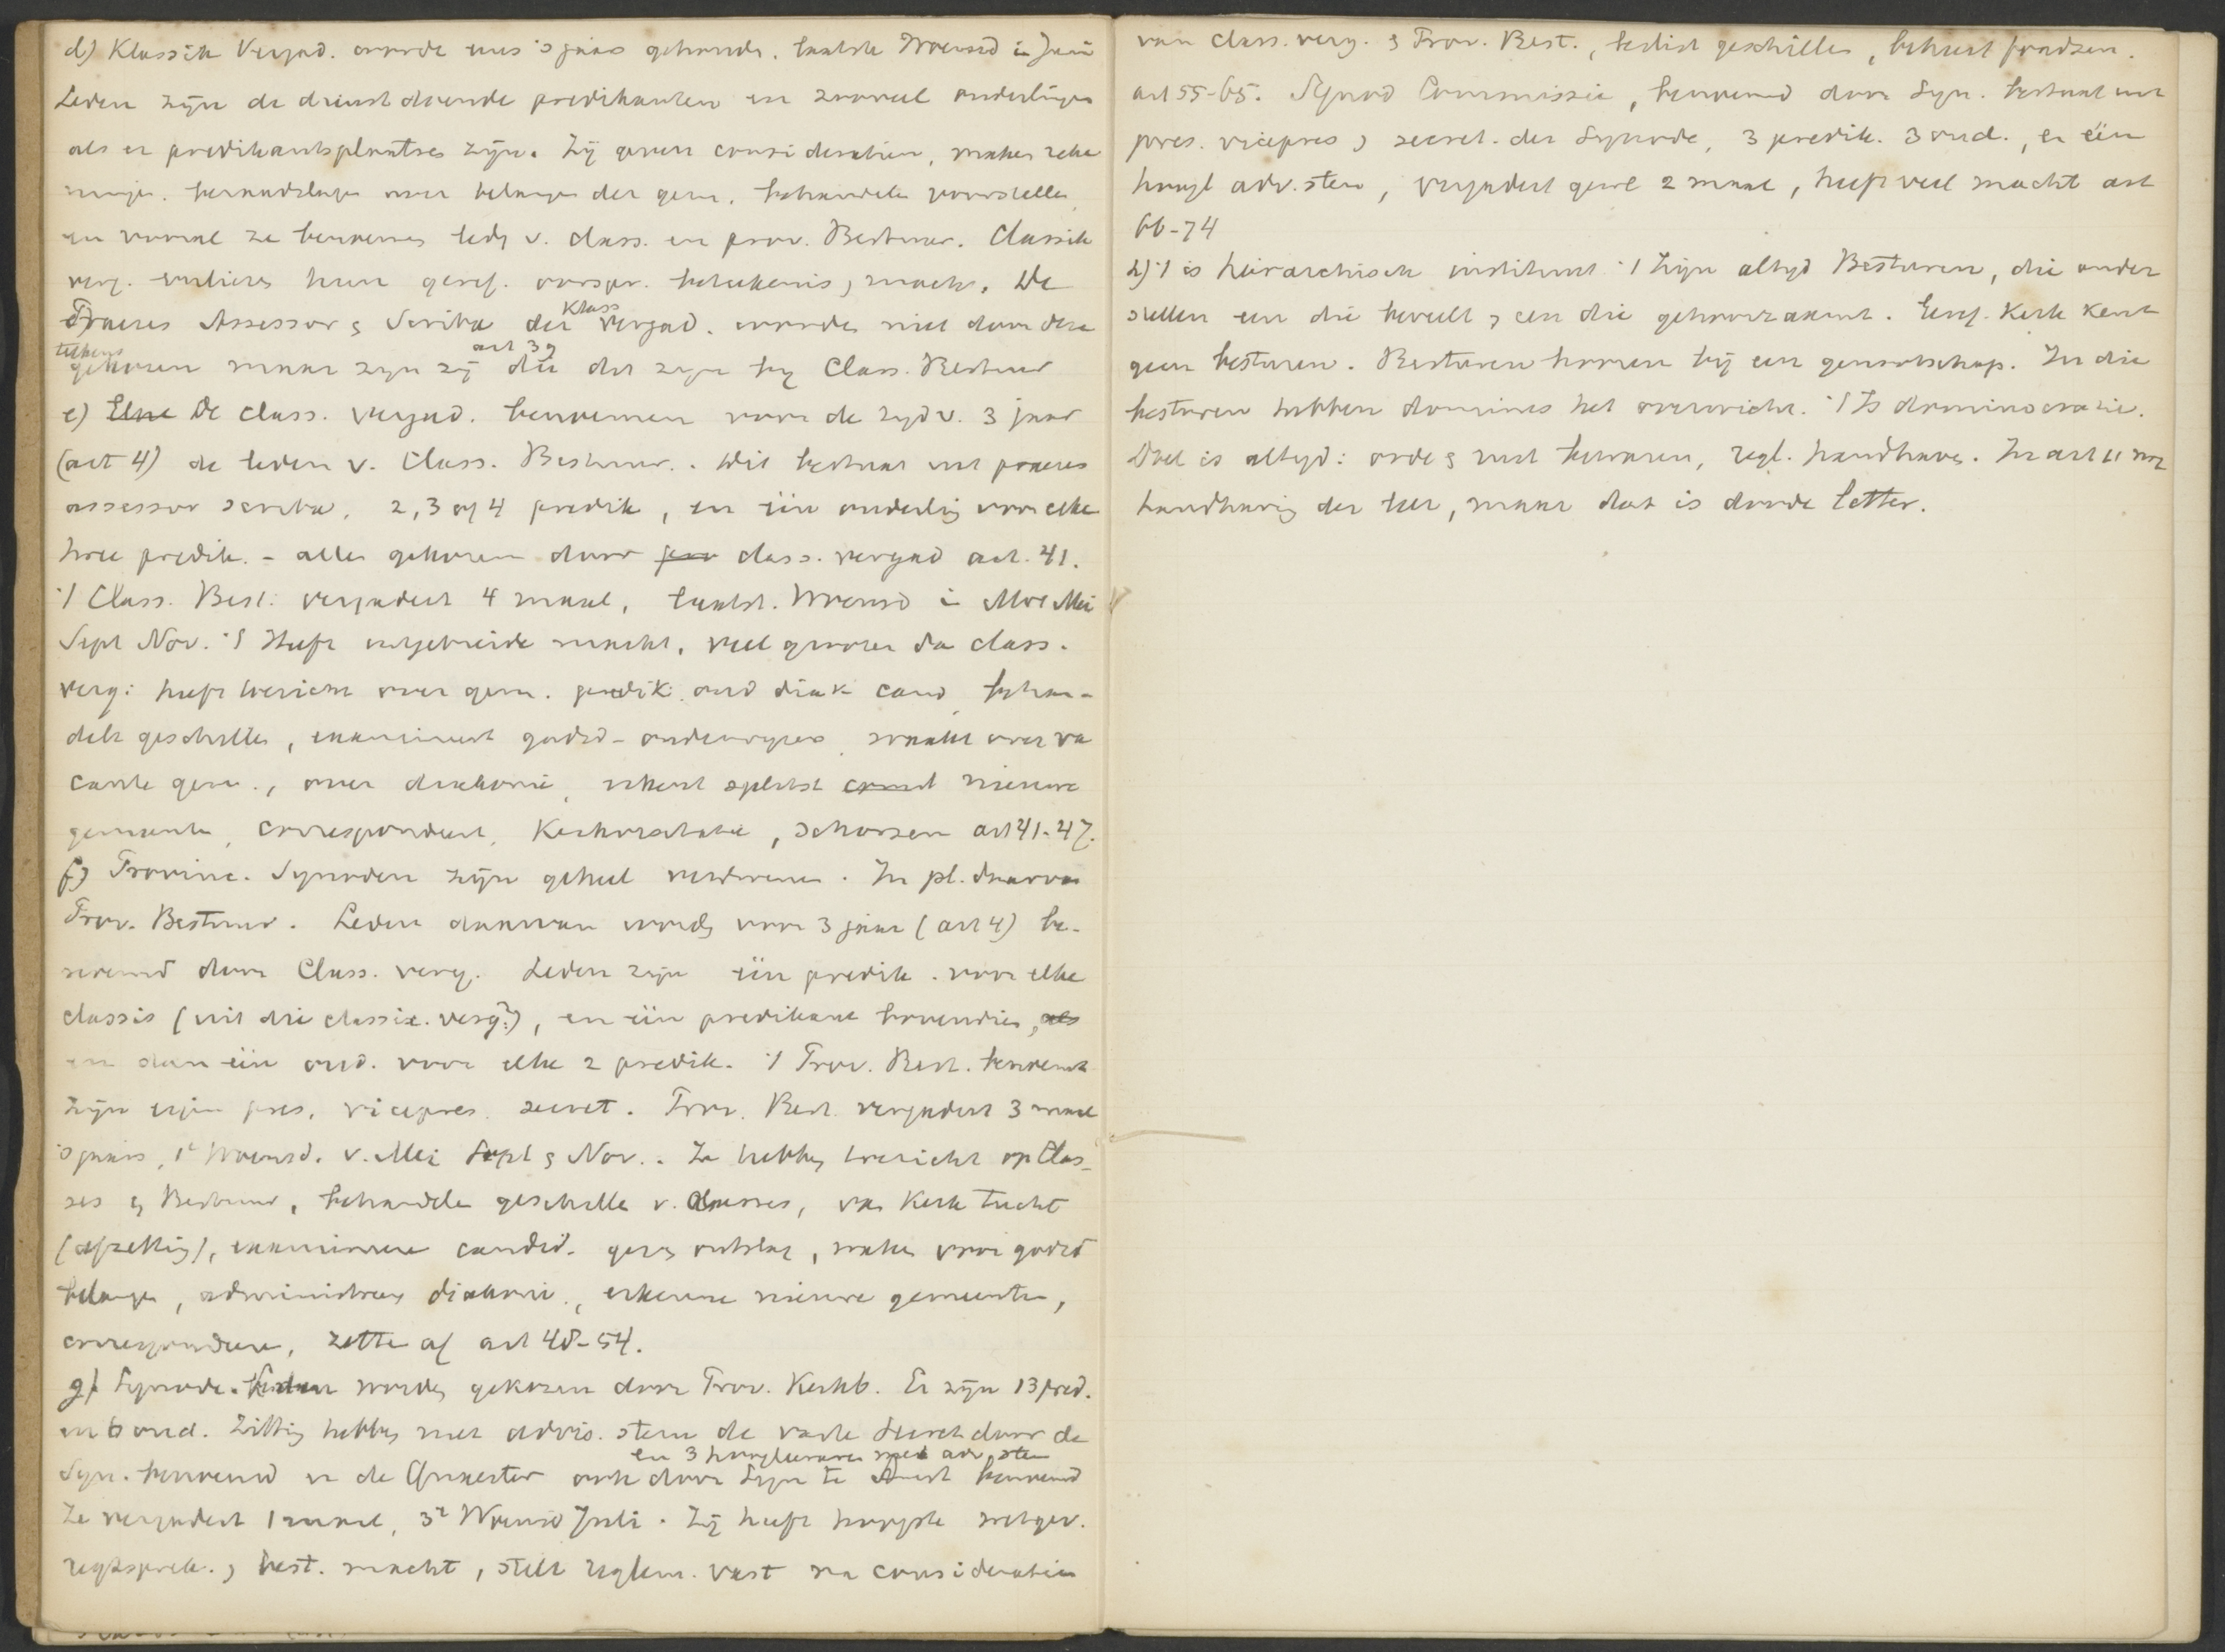 d) Klassik Vergad. worde eens 's jaars gehoude. laatste Woensd in Juni
Leden zijn de dienst doende predikanten en zooveel ouderlingen
als er predikantsplaatses zijn. Zij geven consideratien, maken reke
ninge. beraadslage over belange der gem. behandele voorstelle,
en vooral ze benoemen lede v. class. en prov. Bestuur. Classik
verg. verliezen hun geref. oorspr. beteekenis, macht. De
Praeses Assessor & Scriba der Klass vergad. worden niet door deze
telkens gekozen maar zijn zij art 39 die dit zijn bij Class. Bestuur
e) Elne De class. vergad. benoemen voor de tijd v. 3 jaar
(art 4) de leden v. Class. Bestuur. Dit bestaat uit praeses
assessor scriba, 2, 3 of 4 predik, en één ouderling voor elke
twee predik. - alle gekozen door class. vergad art. 41.
't Class. Best. vergadert 4 maal, laatst. Woensd i Mrt Mei
Sept Nov. 't Heeft uitgebreide macht, veel grooter da class.
verg: heeft toezicht over gem. predik. oud diak cand, behan-
delt geschille, examineert godsd-onderwijzers, waakt over va
cante gem., over diakonie, erkent splitst nieuwe
gemeente, correspondeert, Kerkvisitatie, schorsen art 41-47.
f) Provinc. Synoden zijn geheel verdwenen. In pl. daarvan
Prov. Bestuur. Leden daarvan worde voor 3 jaar (art 4) be-
noemd door Class. verg. Leden zijn één predik. voor elke
classis (uit die classic. verg?), en één predikant bovendien, als
en dan één oud. voor elke 2 predik. 't Prov. Best. benoemt
zijn eigen pres. vicepres. secret. Prov. Best. vergadert 3 maal
's jaars, 1e Woensd. v. Mei Sept & Nov.. Ze hebbe toezicht op Clas-
ses & Bestuur, behandele geschille v. classes, van Kerk tucht
(afzetting), examineere candid. geve ontslag, wake voor godsd
belange, administreere diakonie, erkenne nieuwe gemeente,
correspondeere, zette af art 48-54.
g) Synode. Leden worde gekozen door Prov. Kerkb. Er zijn 13 pred.
en 6 oud. Zitting hebbe met advis. stem de vaste Secret door de
en 3 hoogleeraren met adv stem
Syn. benoemd en de Quaestor ook door Syn te benoemd
Ze vergadert 1 maal, 3e Woensd Juli. Zij heeft hoogste wetgev.
regtsprek., best. macht, stelt reglem. vast na consideratien
van class. verg. & Prov. Best., beslist geschillen, beheert fondsen.
art 55-65. Synod Commissie, benoemd door Syn. bestaat uit
pres. vicepres, secret. der Synode, 3 predik. 3 oud., en één
hoogl adv. stem, vergadert gew 2 maal, heeft veel macht art
66-74
h) 't is hierarchisch instituut 't Zijn altijd Besturen, die onder
stellen een die beveelt, een die gehoorzaamt. Geref. Kerk kent
geen besturen. Besturen hooren bij een genootschap. In die
besturen hebben dominees het overwicht. 't Is dominocratie.
Doel is altijd: orde & rust bewaren, regl. handhave. In art 11 nog
handhaving der leer, maar dat is doode letter.